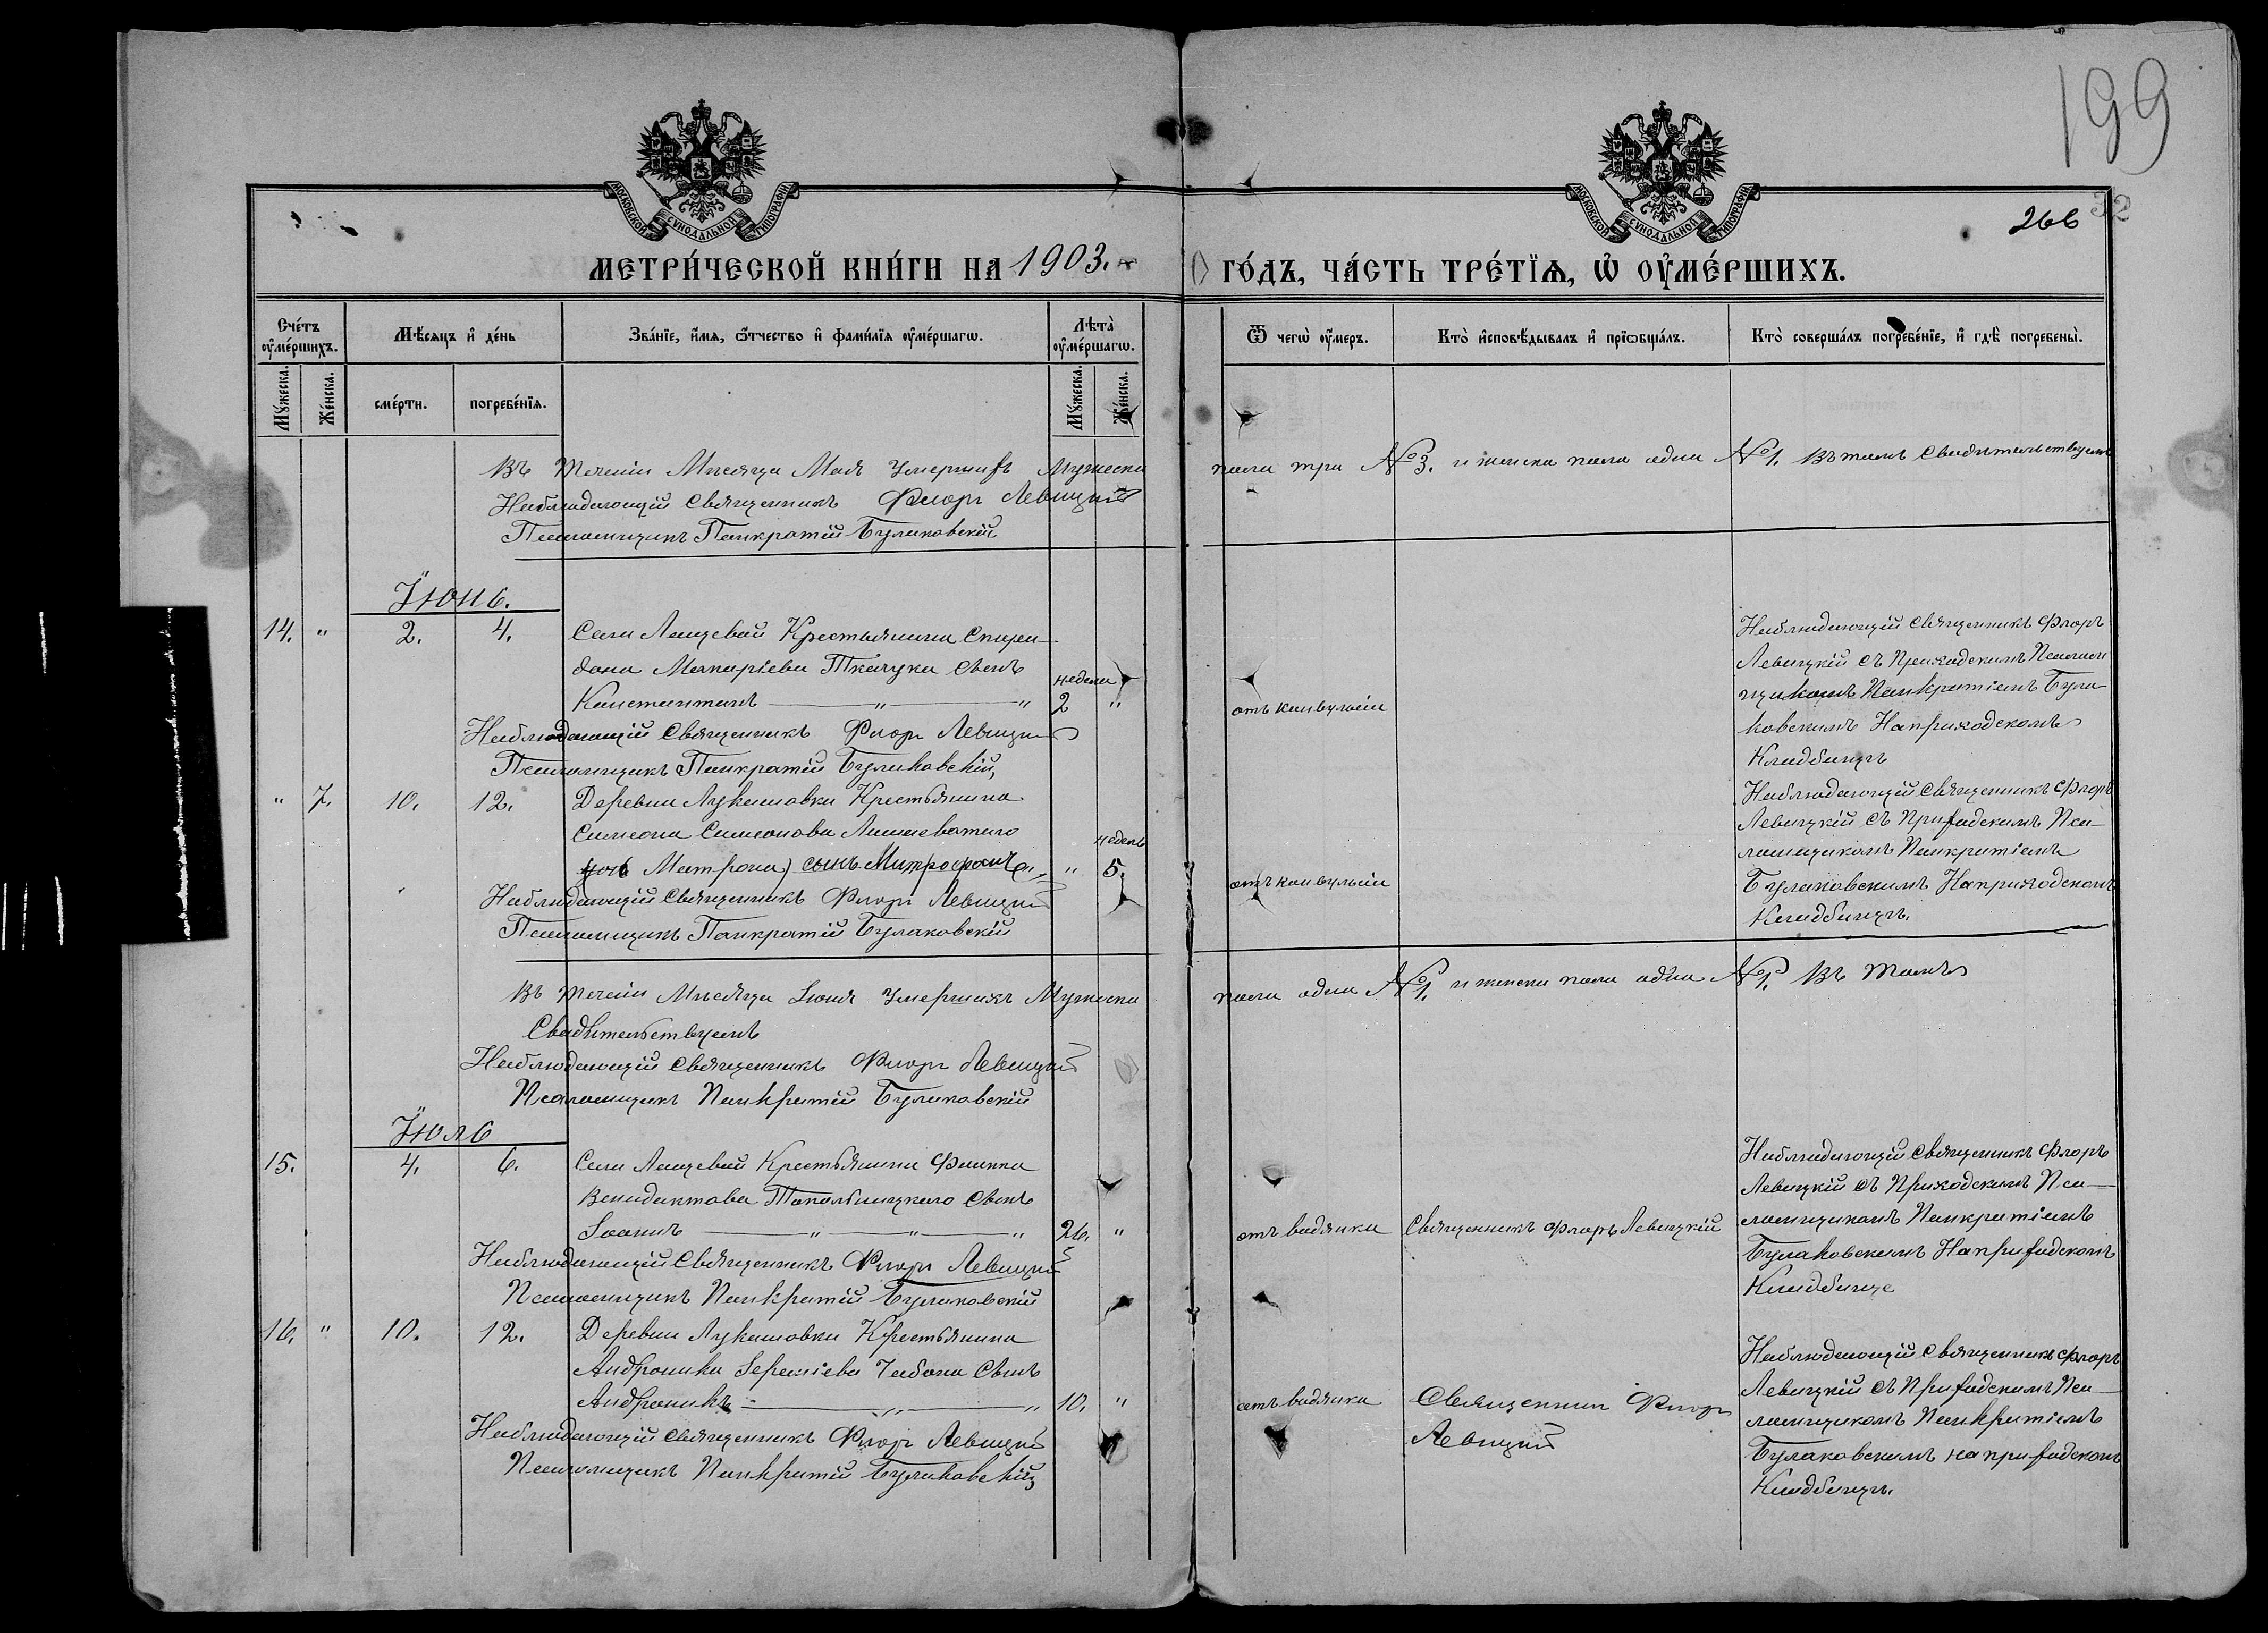 199
266
32
МОСКОВСКОЙ СѴНОДАЛЬНОЙ ТИПОГРАФІИ
МОСКОВСКОЙ СѴНОДАЛЬНОЙ ТИПОГРАФІИ
МЕТРИ́ЧЕСКОЙ КНИ́ГИ НА 1903. ГО́ДЪ, ЧА́СТЬ ТРЕ́ТЇѦ, Ѡ҆ ОУ҆МЕ́РШИХЪ.
Сче́тъ оу҆ме́ршихъ.
Мѣ́сяцъ и҆ де́нь
Зва́нїе, и҆́мя, ѻ҆́тчество и҆ фами́лїя оу҆ме́ршагѡ.
Лѣ́та оу҆ме́ршагѡ.
Ѿ чегѡ̀ оу҆́меръ.
Кто̀ и҆сповѣ́дывалъ и҆ прїѡбща́лъ.
Кто̀ соверша́лъ погребе́нїе, и҆ гдѣ̀ погребены̀.
Му́жеска.
Же́нска.
сме́рти.
погребе́нїя.
Му́жеска.
Же́нска.
Въ течении Мѣсяца Мая умершихъ Мужеска пола три № 3. и женска пола одна № 1. Въ томъ Свидѣтельствуемъ
Наблюдающій Священникъ Флоръ Левицкій
Псаломщикъ Панкратій Булаковскій
Іюнь.
14. " 2. 4. Села Лещевой Крестьянина Спири-
дона Макаріева Ткачука сынъ
недели
Константинъ — " — " 2 " отъ конвульсіи
Наблюдающій Священникъ Флоръ
Левицкій съ Приходскимъ Псалом
щикомъ Панкратіемъ Була-
ковскимъ На приходскомъ
Кладбищѣ
Наблюдающій Священникъ Флоръ Левицкій
Псаломщикъ Панкратій Булаковскій
" 7. 10. 12. Деревни Лукашовки Крестьянина
Симеона Симеонова
недель
дочь Матрона) сынъ Митрофанъ " 5. отъ конвульсіи
Наблюдающій Священникъ Флоръ
Левицкій съ Приходскимъ Пса-
ломщикомъ Панкратіемъ
Булаковскимъ На приходскомъ
Кладбищѣ.
Наблюдающій Священникъ Флоръ Левицкій
Псаломщикъ Панкратій Булаковскій
Въ течении Мѣсяца Іюня умершихъ Мужеска пола одна № 1. и женска пола одна № 1. Въ томъ
Свидѣтельствуемъ
Наблюдающій Священникъ Флоръ Левицкій
Псаломщикъ Панкратій Булаковскій
Іюль
15. 4. 6. Села Лещевой Крестьянина Филиппа
Венидиктова Топольницкаго сынъ
Іоаннъ — " — " — " 26. " отъ водянки Священникъ Флоръ Левицкій
Наблюдающій Священникъ Флоръ
Левицкій съ Приходскимъ Пса-
ломщикомъ Панкратіемъ
Булаковскимъ На приходскомъ
Кладбище
Наблюдающій Священникъ Флоръ Левицкій
Псаломщикъ Панкратій Булаковскій
16. " 10. 12. Деревни Лукашовки Крестьянина
Андроника Іереміева Чабана сынъ
Андроникъ — " — " 10. " отъ водянки Священникъ Флоръ
Левицкій
Наблюдающій Священникъ Флоръ
Левицкій съ Приходскимъ Пса-
ломщикомъ Панкратіемъ
Булаковскимъ на приходскомъ
Кладбищѣ.
Наблюдающій Священникъ Флоръ Левицкій
Псаломщикъ Панкратій Булаковскій